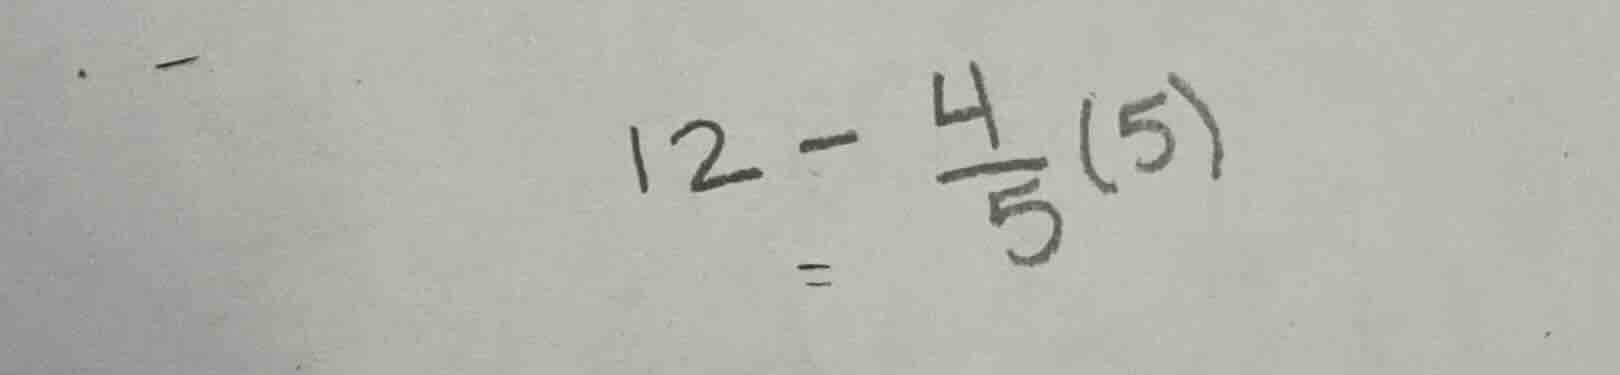 12 - 4/5 (5)
=